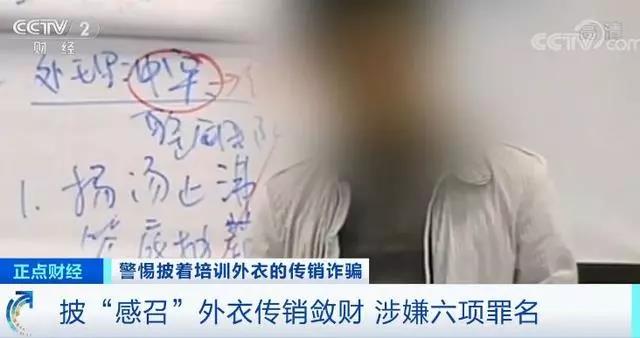 CCTV 2
财经
高清
CCTV.com
处理冲突
1. 扬汤止沸
正点财经
警惕披着培训外衣的传销诈骗
披“感召”外衣传销敛财 涉嫌六项罪名